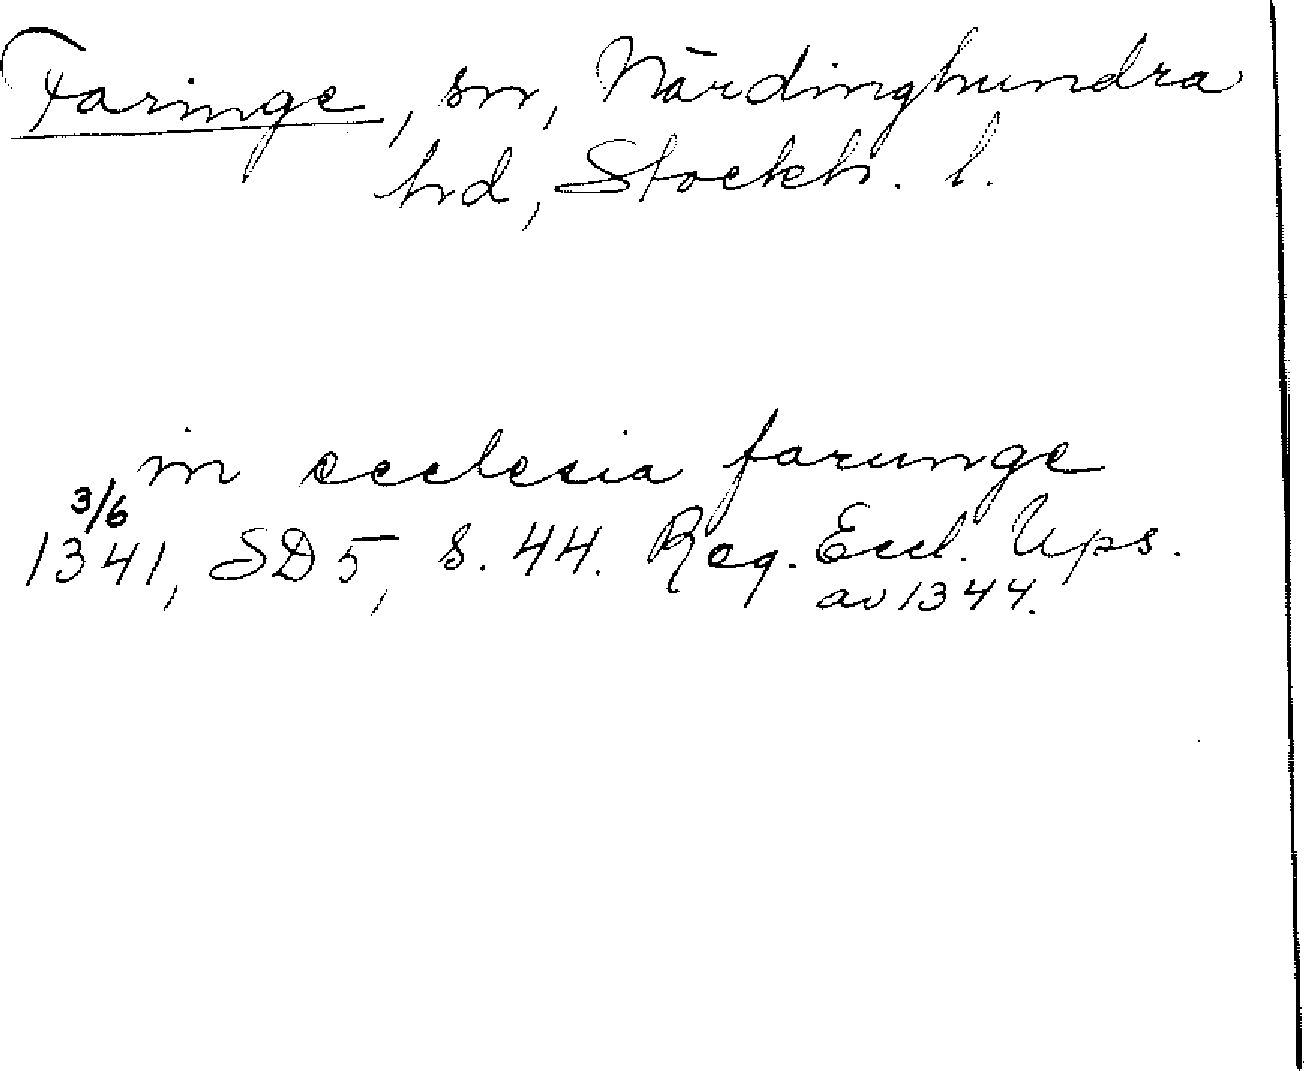 Faringe, sn, Närdinghundra
hd, Stockh. l.
in ecclesia farunge
3/6
1341, SD 5, s. 44. Reg. Eccl. Ups.
av 1344.